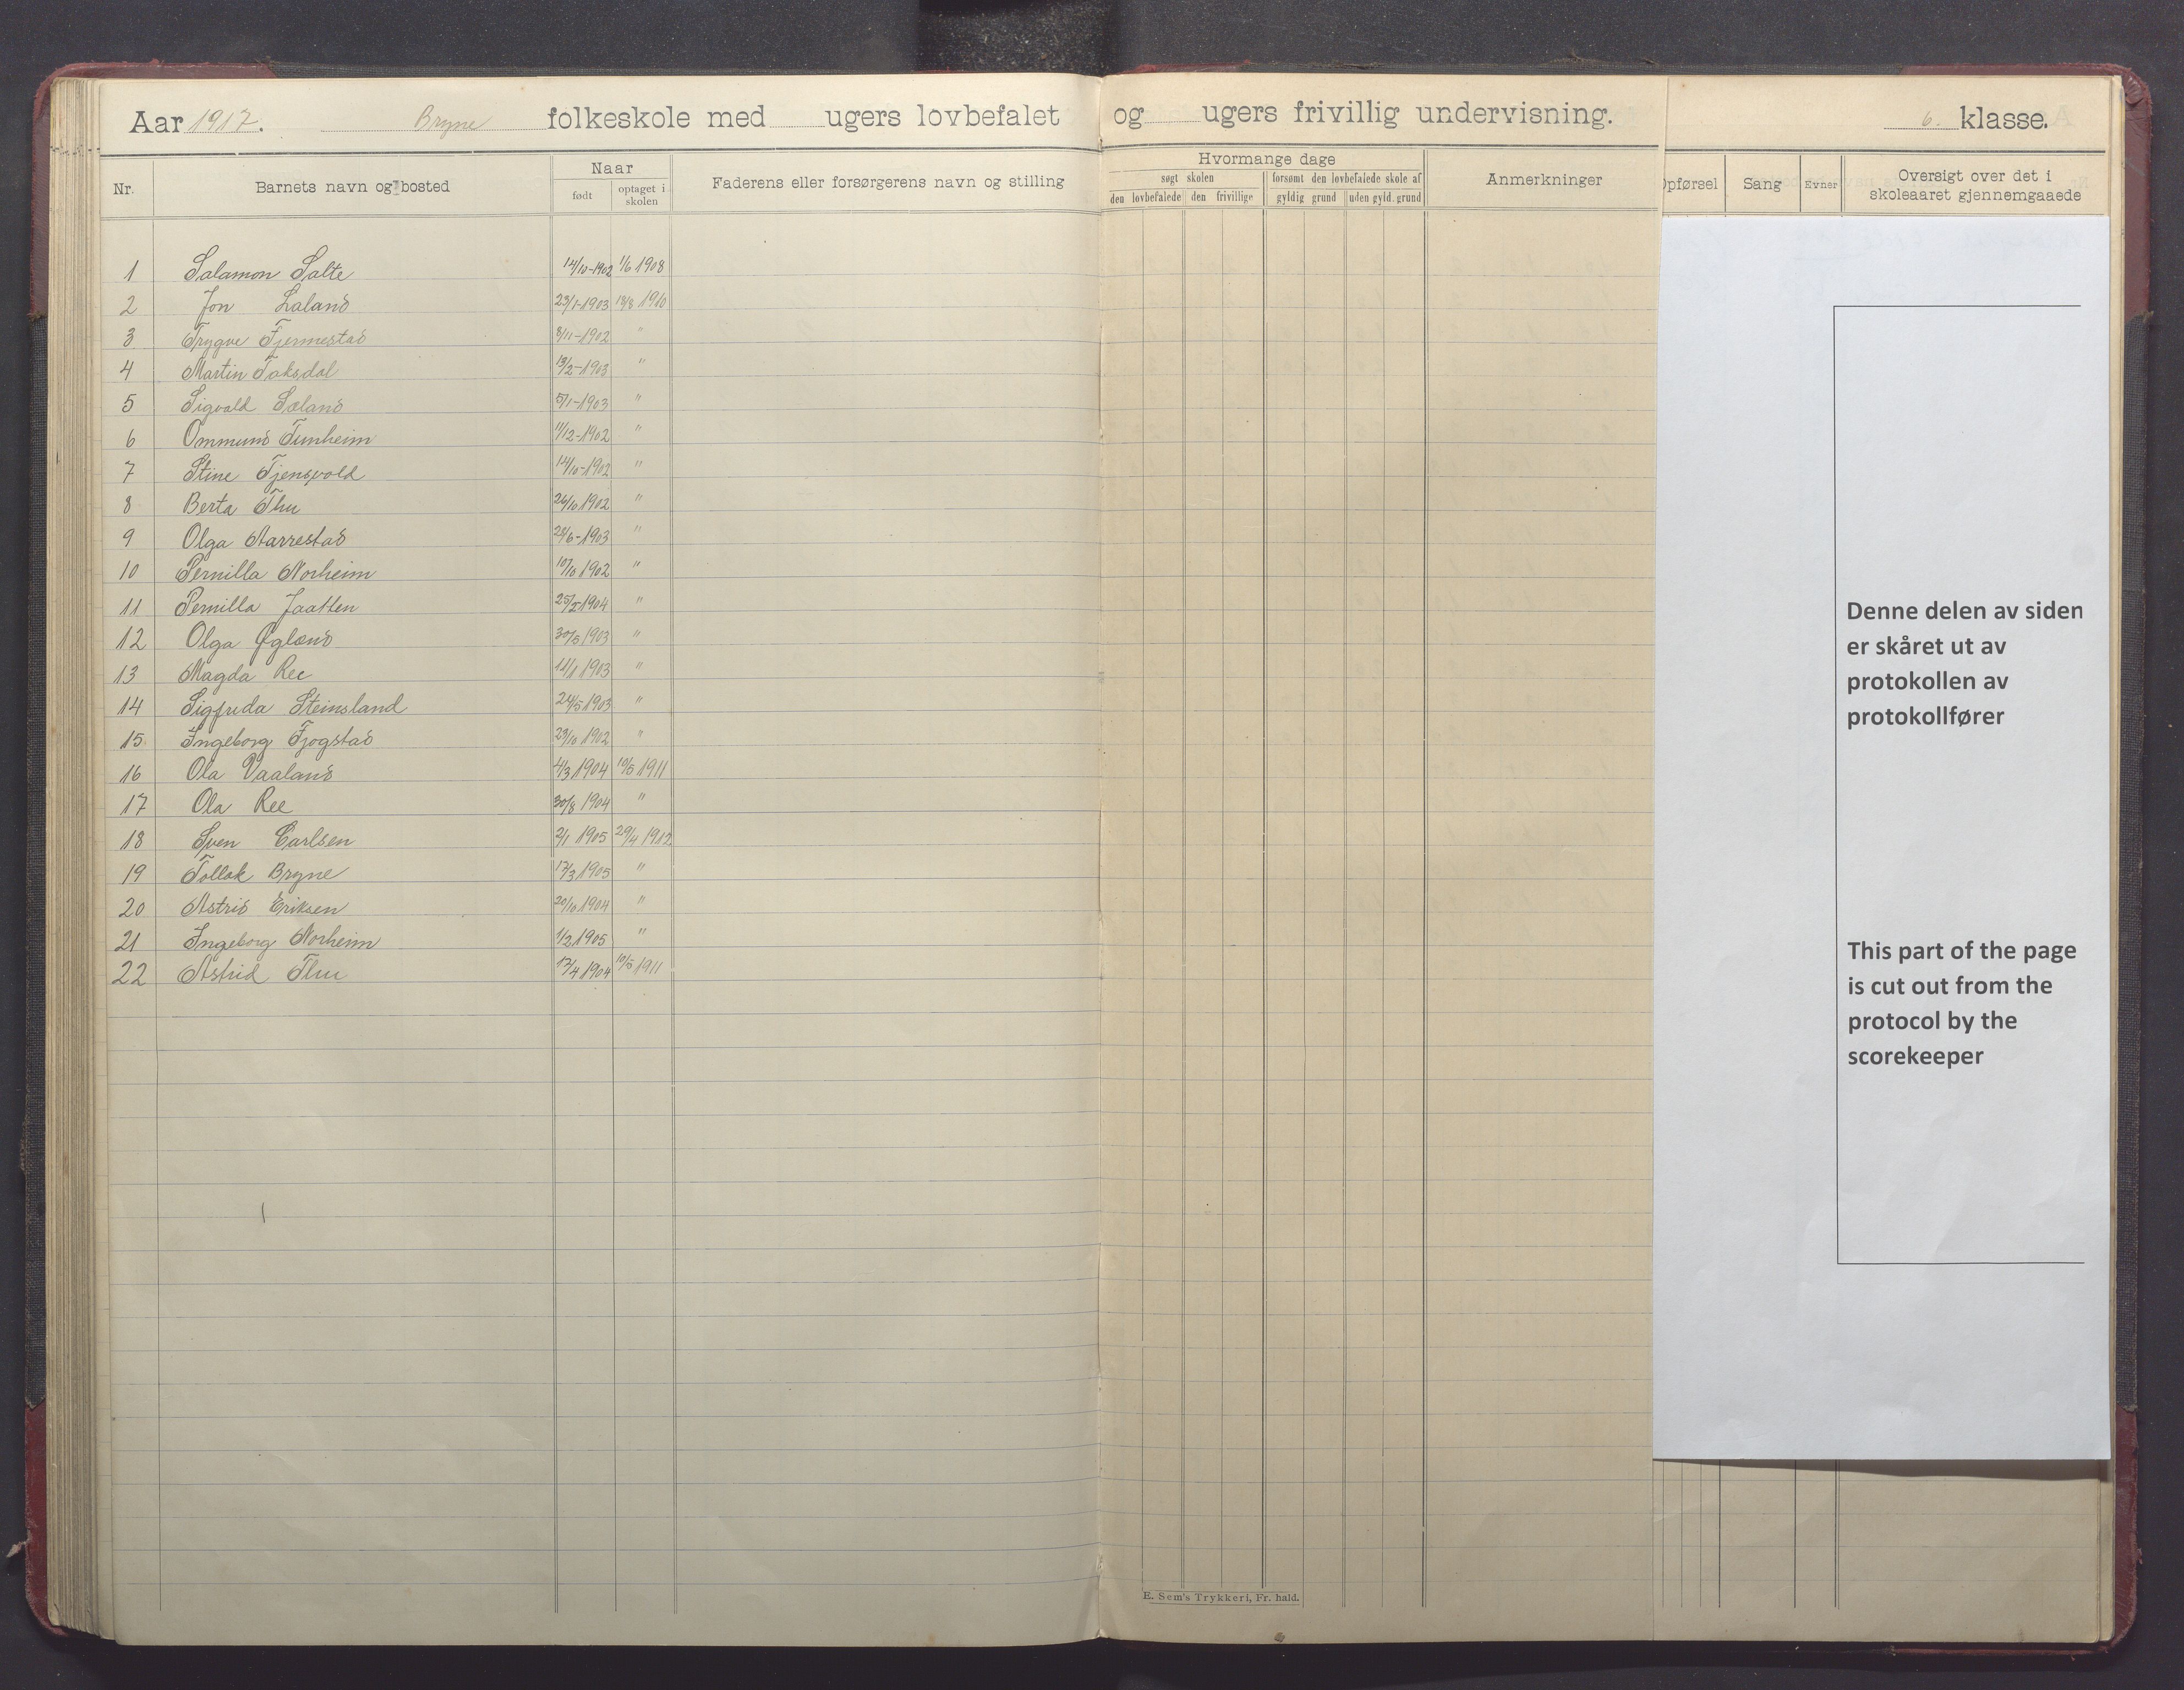 Aar 1917. Bryne folkeskole med ugers lovbefalet og ugers frivillig undervisning. 6. klasse.
Nr. Barnets navn og bosted Naar født optaget i skolen Faderens eller forsørgerens navn og stilling Hvormange dage søgt skolen den lovbefalede den frivillige forsømt den lovbefalede skole af gyldig grund uden gyld. grund Anmerkninger Opførsel Sang Evner Oversigt over det i skoleaaret gjennemgaaede
1 Salamon Salte 14/10-1902 1/6 1908
2 Jon Laland 23/1-1903 18/8 1910
3 Trygve Fjermestad 8/11-1902 "
4 Martin Taksdal 13/2-1903 "
5 Sigvald Sæland 5/1-1903 "
6 Ommund Tunheim 11/12-1902 "
7 Stine Tjensvold 14/10-1902 "
8 Berta Thu 26/10 1902 "
9 Olga Aarrestad 28/6-1903 "
10 Pernilla Norheim 10/10 1902 "
11 Pernilla Jaatten 1904 "
12 Olga Øgland 30/5 1903 "
13 Magda Ree 11/1 1903 "
14 Sigfrida Steinsland 24/5 1903 "
15 Ingeborg Fjogstad 23/10 1902 "
16 Ola Vaaland 4/3 1904 10/5 1911
17 Ola Ree 30/8 1904 "
18 Sven Carlsen 2/1 1905 29/4 1912
19 Tollak Bryne 17/3 1905 "
20 Astrid Eriksen 20/10 1904 "
21 Ingeborg Norheim 1/2 1905 "
22 Astrid Thu 17/4 1904 10/5 1911
E. Sem's Trykkeri, Fr. hald.
Denne delen av siden
er skåret ut av
protokollen av
protokollfører
This part of the page
is cut out from the
protocol by the
scorekeeper